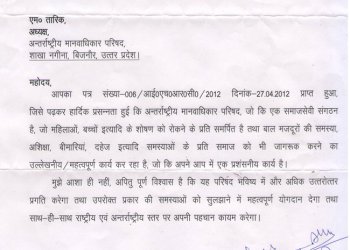 एम० तारिक,
अध्यक्ष,
अन्तर्राष्ट्रीय मानवाधिकार परिषद,
शाखा नगीना, बिजनौर, उत्तर प्रदेश।
महोदय,
आपका पत्र संख्या-006/आई०एच०आर०सी०/2012 दिनांक-27.04.2012 प्राप्त हुआ,
जिसे पढकर हार्दिक प्रसन्नता हुई कि अन्तर्राष्ट्रीय मानवाधिकार परिषद, जो कि एक समाजसेवी संगठन
है, जो महिलाओं, बच्चों इत्यादि के शोषण को रोकने के प्रति समर्पित है तथा बाल मजदूरों की समस्या,
अशिक्षा, बीमारियां, दहेज इत्यादि समस्याओं के प्रति समाज को भी जागरूक करने का
उल्लेखनीय/महत्वपूर्ण कार्य कर रहा है, जो कि अपने आप में एक प्रशंसनीय कार्य है।
मुझे आशा ही नहीं, अपितु पूर्ण विश्वास है कि यह परिषद भविष्य में और अधिक उत्तरोत्तर
प्रगति करेगा तथा उपरोक्त प्रकार की समस्याओं को सुलझाने में महत्वपूर्ण योगदान देगा तथा
साथ-ही-साथ राष्ट्रीय एवं अन्तर्राष्ट्रीय स्तर पर अपनी पहचान कायम करेगा।